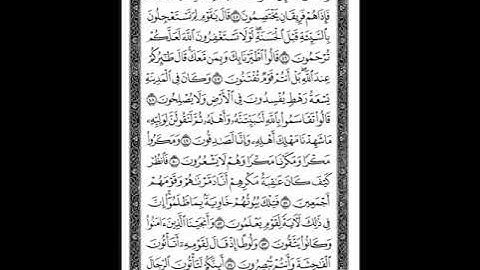 فَإِذَا هُمْ فَرِيقَانِ يَخْتَصِمُونَ ۝ قَالَ يَٰقَوْمِ لِمَ تَسْتَعْجِلُونَ
بِٱلسَّيِّئَةِ قَبْلَ ٱلْحَسَنَةِ ۖ لَوْلَا تَسْتَغْفِرُونَ ٱللَّهَ لَعَلَّكُمْ
تُرْحَمُونَ ۝ قَالُوا۟ ٱطَّيَّرْنَا بِكَ وَبِمَن مَّعَكَ ۚ قَالَ طَٰٓئِرُكُمْ
عِندَ ٱللَّهِ ۖ بَلْ أَنتُمْ قَوْمٌ تُفْتَنُونَ ۝ وَكَانَ فِى ٱلْمَدِينَةِ
تِسْعَةُ رَهْطٍ يُفْسِدُونَ فِى ٱلْأَرْضِ وَلَا يُصْلِحُونَ ۝
قَالُوا۟ تَقَاسَمُوا۟ بِٱللَّهِ لَنُبَيِّتَنَّهُۥ وَأَهْلَهُۥ ثُمَّ لَنَقُولَنَّ لِوَلِيِّهِۦ
مَا شَهِدْنَا مَهْلِكَ أَهْلِهِۦ وَإِنَّا لَصَٰدِقُونَ ۝ وَمَكَرُوا۟
مَكْرًا وَمَكَرْنَا مَكْرًا وَهُمْ لَا يَشْعُرُونَ ۝ فَٱنظُرْ
كَيْفَ كَانَ عَٰقِبَةُ مَكْرِهِمْ أَنَّا دَمَّرْنَٰهُمْ وَقَوْمَهُمْ
أَجْمَعِينَ ۝ فَتِلْكَ بُيُوتُهُمْ خَاوِيَةًۢ بِمَا ظَلَمُوٓا۟ ۗ إِنَّ
فِى ذَٰلِكَ لَءَايَةً لِّقَوْمٍ يَعْلَمُونَ ۝ وَأَنجَيْنَا ٱلَّذِينَ ءَامَنُوا۟
وَكَانُوا۟ يَتَّقُونَ ۝ وَلُوطًا إِذْ قَالَ لِقَوْمِهِۦٓ أَتَأْتُونَ
ٱلْفَٰحِشَةَ وَأَنتُمْ تُبْصِرُونَ ۝ أَئِنَّكُمْ لَتَأْتُونَ ٱلرِّجَالَ